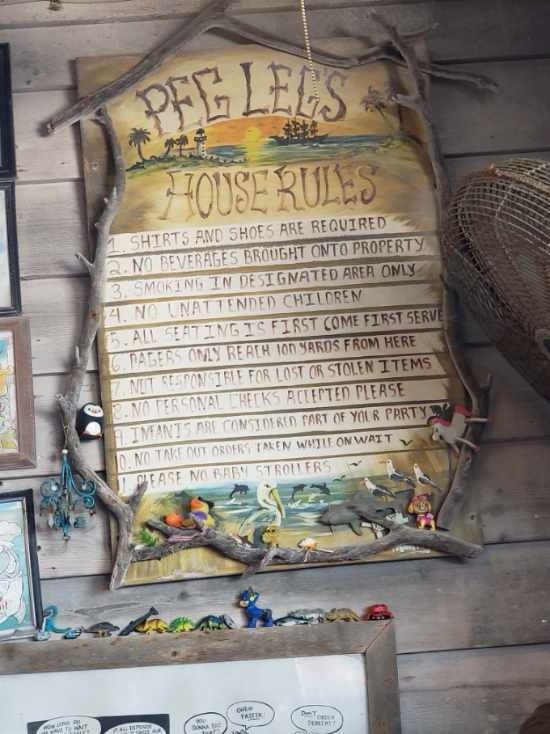 PEG LEG'S
HOUSE RULES
1. SHIRTS AND SHOES ARE REQUIRED
2. NO BEVERAGES BROUGHT ONTO PROPERTY
3. SMOKING IN DESIGNATED AREA ONLY
4. NO UNATTENDED CHILDREN
5. ALL SEATING IS FIRST COME FIRST SERVE
6. PAGERS ONLY REACH 100 YARDS FROM HERE
7. NOT RESPONSIBLE FOR LOST OR STOLEN ITEMS
8. NO PERSONAL CHECKS ACCEPTED PLEASE
9. INFANTS ARE CONSIDERED PART OF YOUR PARTY
10. NO TAKE OUT ORDERS TAKEN WHILE ON WAIT
11. PLEASE NO BABY STROLLERS